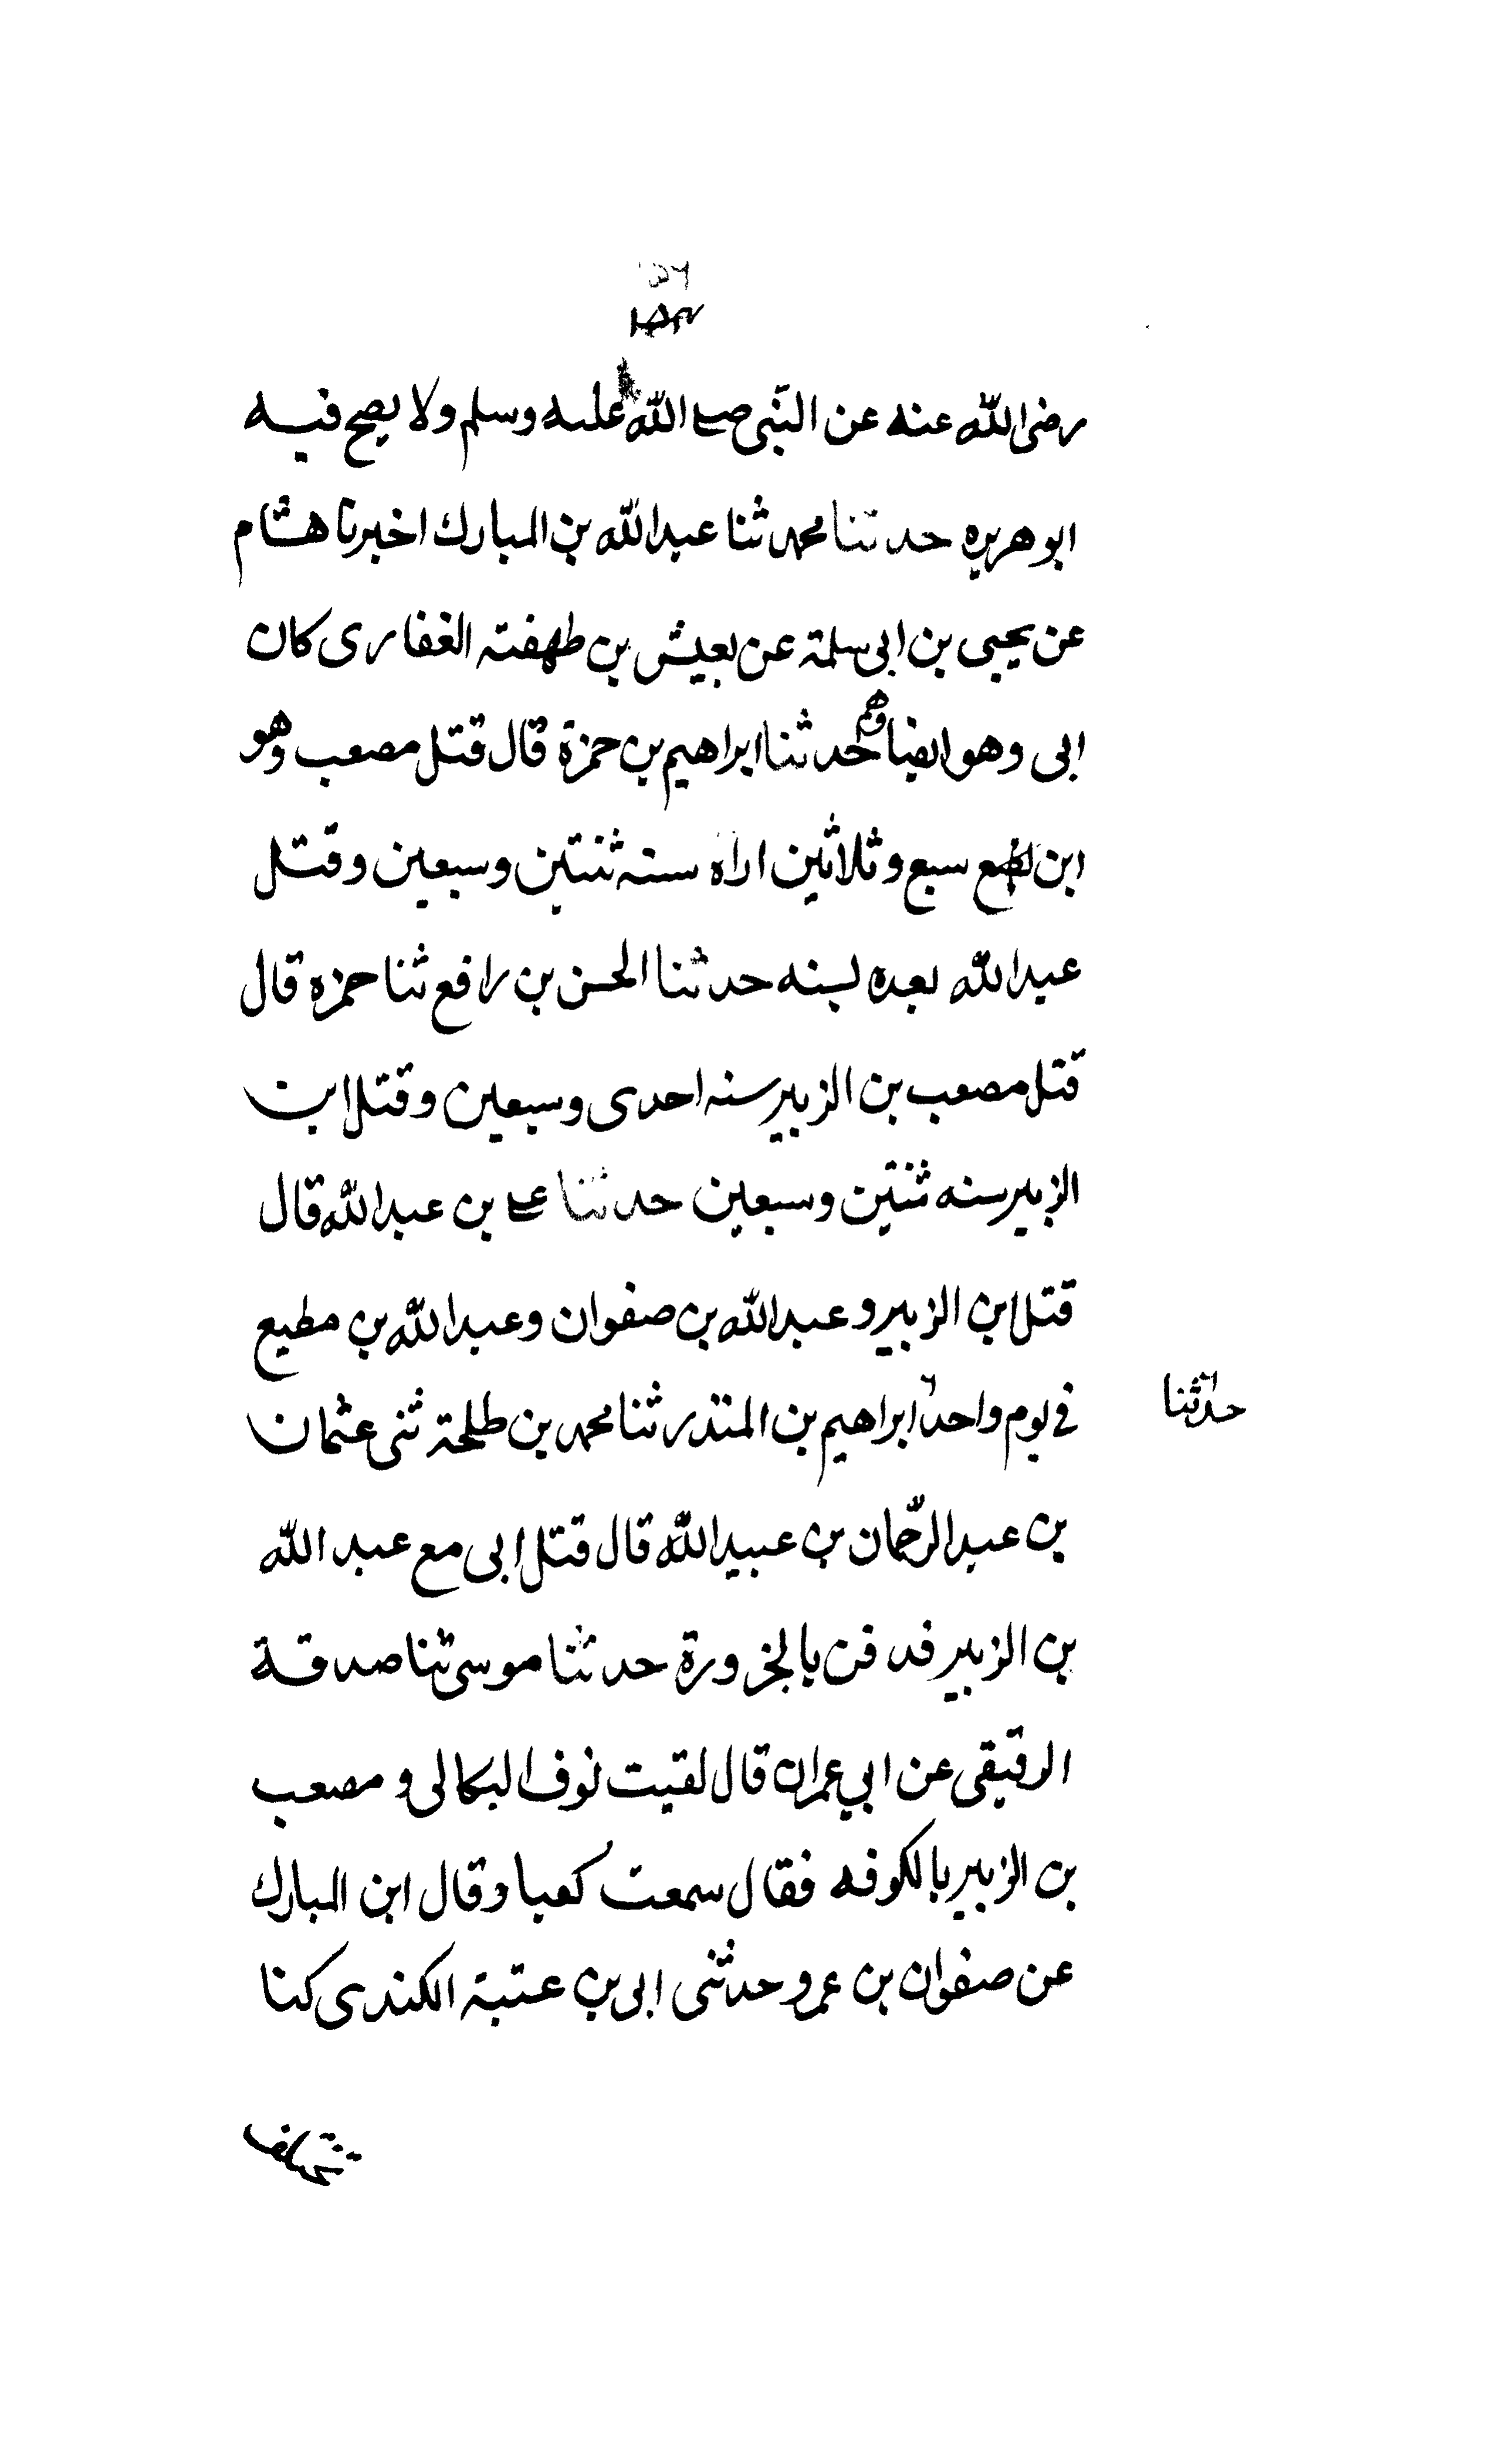 رضى الله عنه عن النبى صلى الله عليه وسلم ولا يصح فيه
ابو هريره حدثنا محمد ثنا عبد الله بن المبارك اخبرنا هشام
عن يحيى بن ابى سلمة عن يعيش بن طهفته الغفارى كان
ابى وهو ايضا وهم حدثنا ابراهيم بن حمزة قال قتل مصعب وهو
ابن سبع وثلاثين اراه سنه ثنتين وسبعين وقتل
عبد الله بعده بسنه حدثنا الحسن بن رافع ثنا حمزه قال
قتل مصعب بن الزبير سنه احدى وسبعين وقتل ابن
الزبير سنه ثنتين وسبعين حدثنا على بن عبد الله قال
قتل ابن الزبير وعبد الله بن صفوان وعبد الله بن مطيع
فى يوم واحد ابراهيم بن المنذر ثنا محمد بن طلحة ثنى عثمان
حدثنا
بن عبد الرحمان بن عبيد الله قال قتل ابى مع عبد الله
بن الزبير فدفن بالخزورة حدثنا موسى ثنا صدقة
الرقيقى عن ابى عمران قال لقيت نوف البكالى و مصعب
بن الزبير بالكوفه فقال سمعت كعبا وقال ابن المبارك
عن صفوان بن عمرو حدثنى ابى بن عتبة الكندى كنا